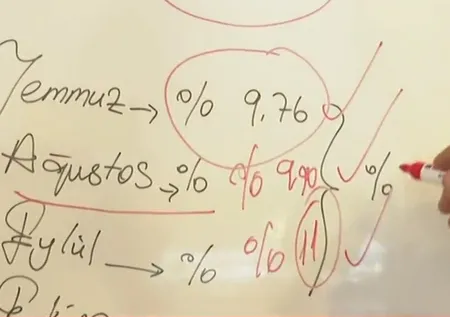 Temmuz → % 9.76
Ağustos → % % 9.90 %
Eylül → % % 11